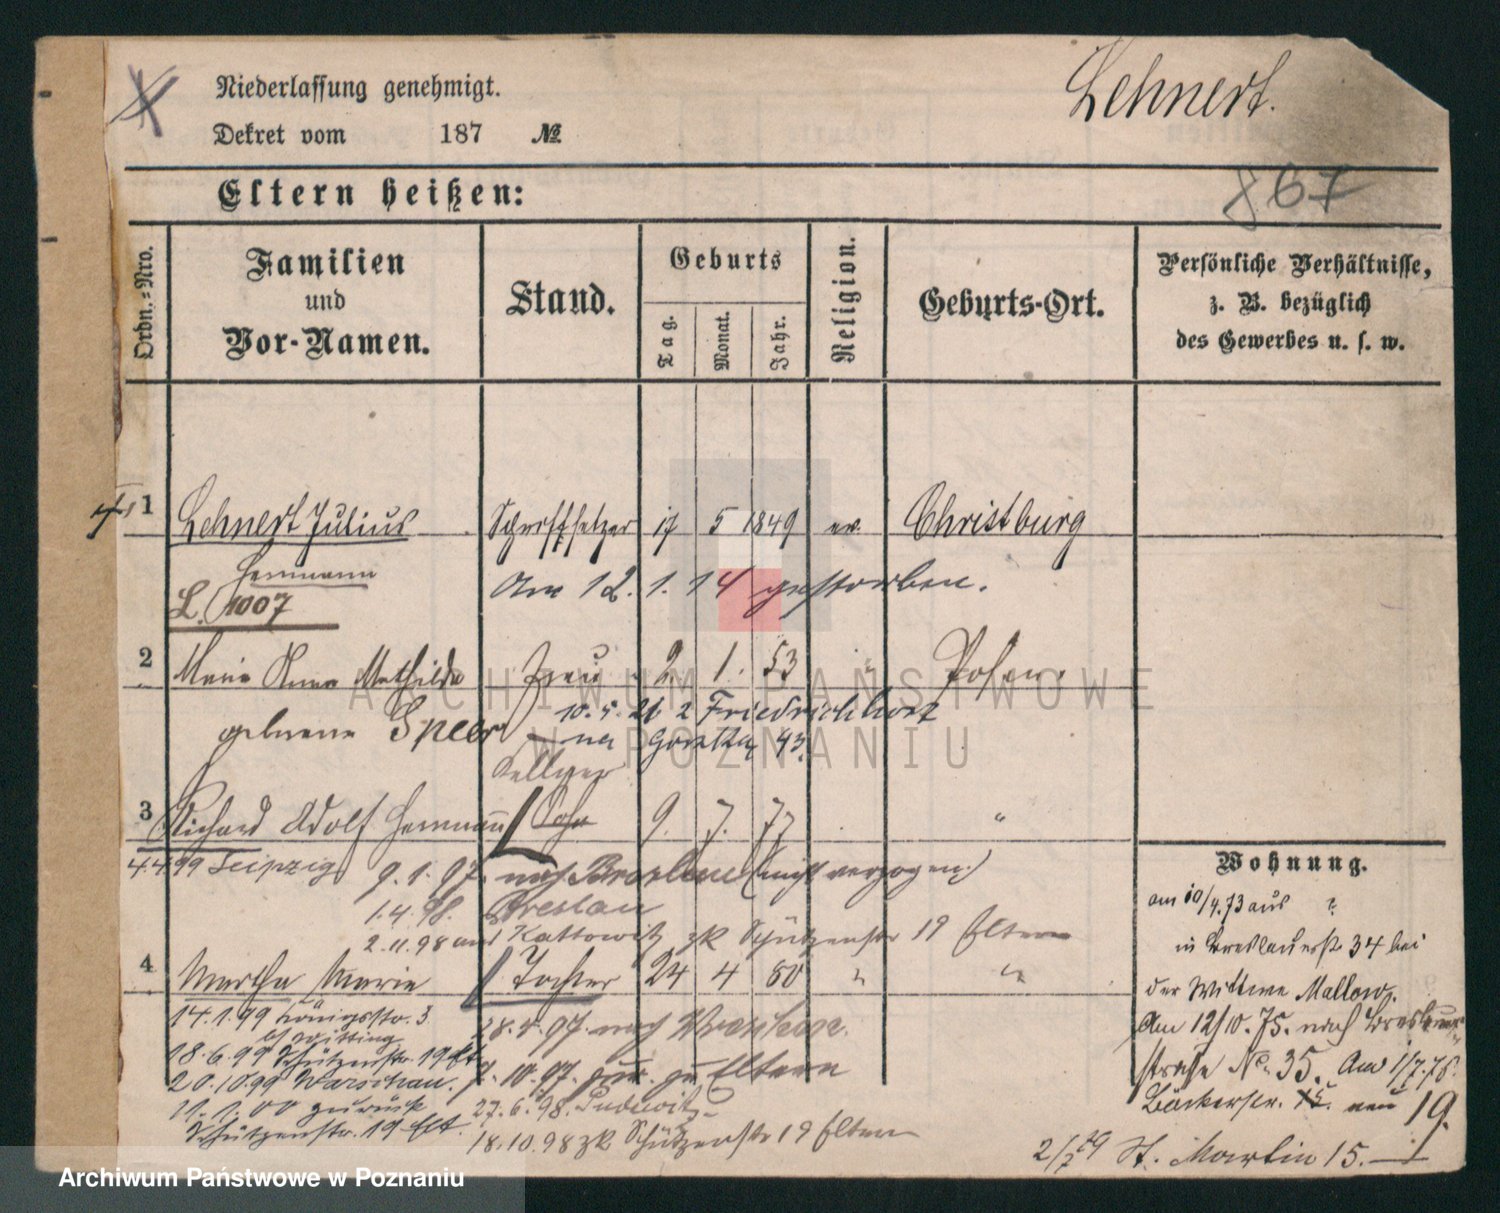 Niederlassung genehmigt.
Lehnert.
Dekret vom 187 №
867
Eltern heißen:
Ordn.-Nro.
Familien und Vor-Namen.
Stand.
Geburts
Tag.
Monat.
Jahr.
Religion.
Geburts-Ort.
Persönliche Verhältnisse,
z. B. bezüglich
des Gewerbes u. s. w.
1 Lehnert Julius Schriftsetzer 17 5 1849 ev. Christburg
Hermann
L. 1007
Am 12. 1. 14 gestorben.
2 Maria Anna Mathilde Frau 2. 1. 53 " Posen.
geborene Speer
10. 5. 21 2 Friedrichhorst
Gorztka 43.
Kellner
3 Richard Adolf Hermann Sohn 9. 7. 77 "
4.4.99 Leipzig
9. 1. 97. nach Breslau (nicht verzogen)
1.4.98. Breslau
2.11.98 aus Kattowitz zk Schützenstr 19 Eltern
4 Martha Marie Tochter 24 4 80 " "
14.1.99 Königsstr. 3
b/ Witting
28.5.97. nach
18.6.99 Schützenstr. 19 Elt.
10.97. zur. zu Eltern
20.10.99 Warschau.
27.6.98. Pudewitz
11.1.00 zurück
Schützenstr. 19 Elt.
18.10.98 zk. Schützenstr 19 Eltern
Wohnung.
am 10/4.73 aus ?
in Breslauerstr 34 bei
der Wittwe Mallow.
Am 12/10.75. nach Breslauer
straße No. 35. Am 1/7.78.
Bäckerstr. 15. neu 19.
2/7 79 St. Martin 15.
ARCHIWUM PAŃSTWOWE
W POZNANIU
Archiwum Państwowe w Poznaniu